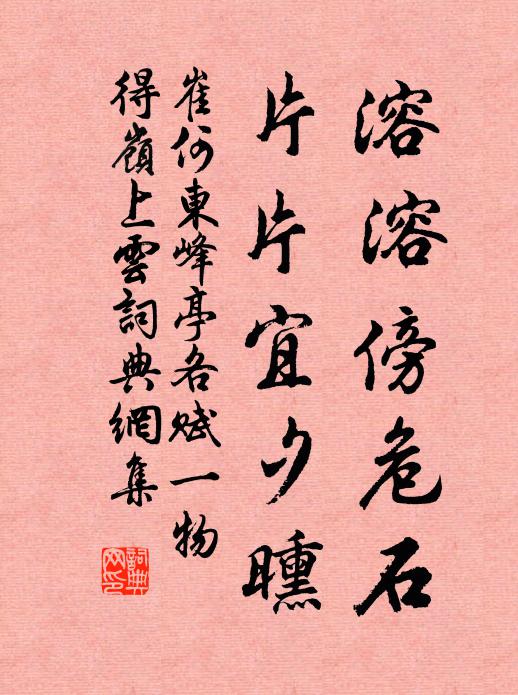 溶溶傍危石
片片宜夕曛
崔何東峰亭各賦一物
得嶺上雲詞典網集
詞典網印